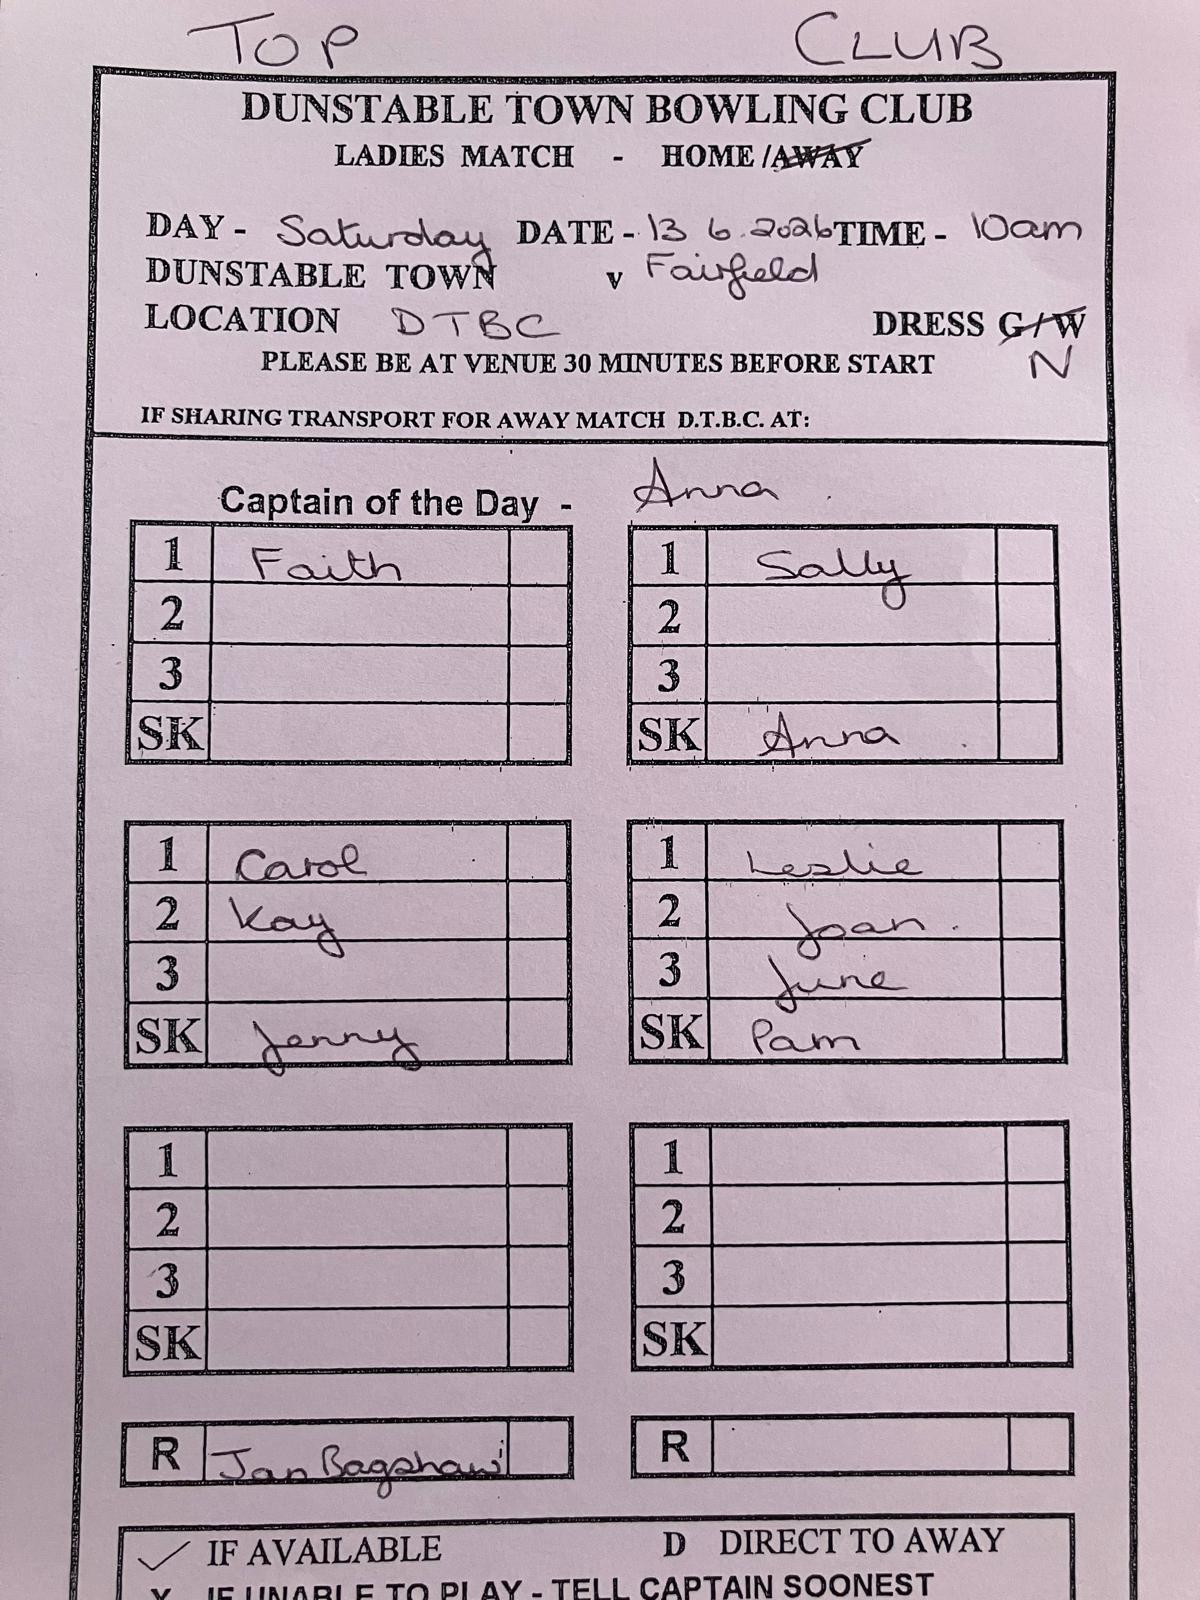 TOP CLUB
DUNSTABLE TOWN BOWLING CLUB
LADIES MATCH - HOME/AWAY
DAY - Saturday DATE - 13 6.2026 TIME - 10am
DUNSTABLE TOWN v Fairfield
LOCATION DTBC DRESS G/W
N
PLEASE BE AT VENUE 30 MINUTES BEFORE START
IF SHARING TRANSPORT FOR AWAY MATCH D.T.B.C. AT:
Captain of the Day - Anna
1 Faith
2
3
SK
1 Sally
2
3
SK Anna
1 Carol
2 Kay
3
SK Jenny
1 Leslie
2 Joan
3 June
SK Pam
1
2
3
SK
1
2
3
SK
R Jan Bagshaw
R
✓ IF AVAILABLE D DIRECT TO AWAY
X IF UNABLE TO PLAY - TELL CAPTAIN SOONEST